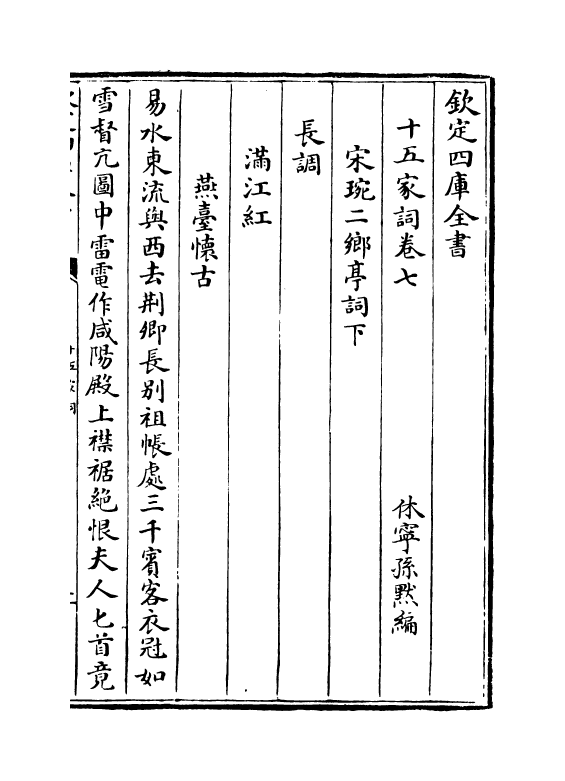 欽定四庫全書
十五家詞卷七
休寧孫默編
宋琬二鄉亭詞下
長調
滿江紅
燕臺懷古
易水東流與西去荆卿長别祖帳處三千賓客衣冠如
雪督亢圖中雷電作咸陽殿上襟裾絶恨夫人匕首竟